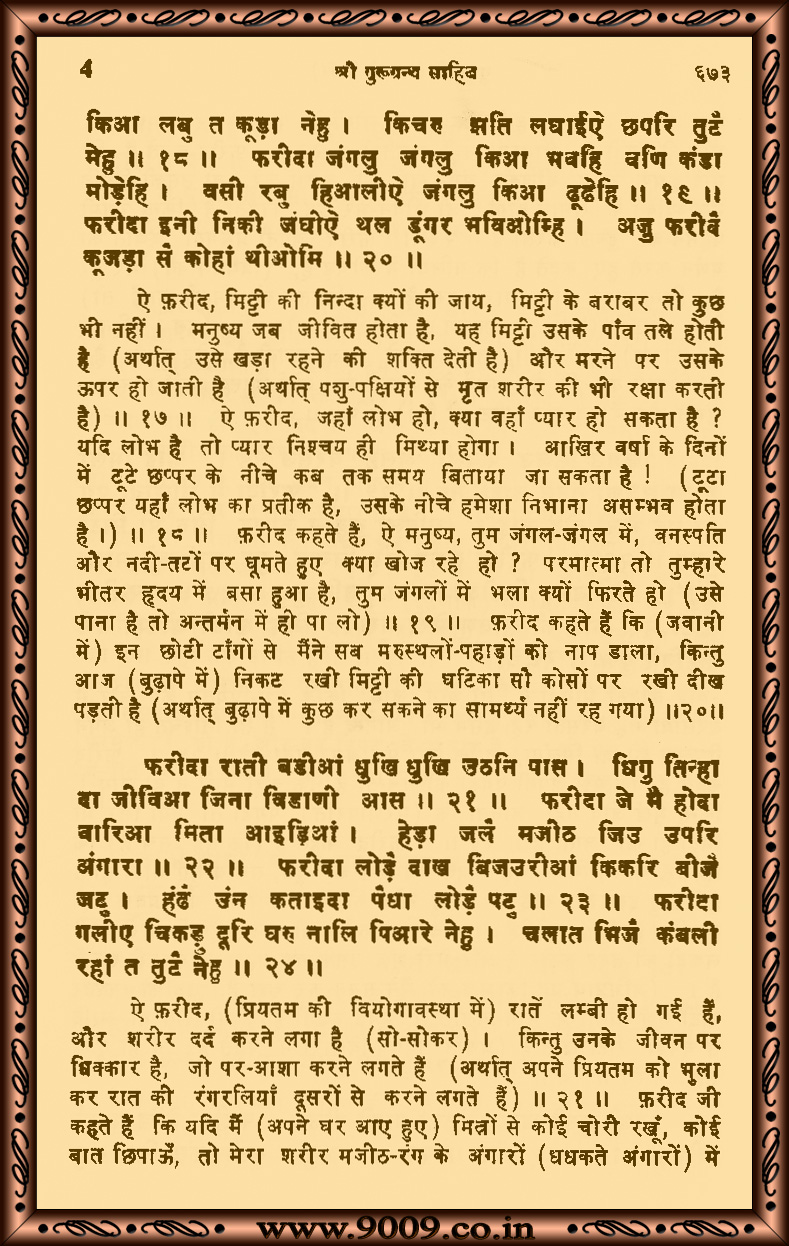 4 श्री गुरूग्रन्थ साहिब ६७३
किआ लबु त कूड़ा नेहु । किचरु झति लघाईऐ छपरि तुटै
मेहु ॥ १८ ॥ फरीदा जंगलु जंगलु किआ भवहि वणि कंडा
मोड़ेहि । वसी रबु हिआलीऐ जंगलु किआ ढूढेहि ॥ १९ ॥
फरीदा इनी निकी जंघीऐ थल डूंगर भविओम्हि । अजु फरीदै
कूजड़ा सै कोहां थीओमि ॥ २० ॥
ऐ फ़रीद, मिट्टी की निन्दा क्यों की जाय, मिट्टी के बराबर तो कुछ
भी नहीं । मनुष्य जब जीवित होता है, यह मिट्टी उसके पाँव तले होती
है (अर्थात् उसे खड़ा रहने की शक्ति देती है) और मरने पर उसके
ऊपर हो जाती है (अर्थात् पशु-पक्षियों से मृत शरीर की भी रक्षा करती
है) ॥ १७ ॥ ऐ फ़रीद, जहाँ लोभ हो, क्या वहाँ प्यार हो सकता है ?
यदि लोभ है तो प्यार निश्चय ही मिथ्या होगा । आखिर वर्षा के दिनों
में टूटे छप्पर के नीचे कब तक समय बिताया जा सकता है ! (टूटा
छप्पर यहाँ लोभ का प्रतीक है, उसके नीचे हमेशा निभाना असम्भव होता
है ।) ॥ १८ ॥ फ़रीद कहते हैं, ऐ मनुष्य, तुम जंगल-जंगल में, वनस्पति
और नदी-तटों पर घूमते हुए क्या खोज रहे हो ? परमात्मा तो तुम्हारे
भीतर हृदय में बसा हुआ है, तुम जंगलों में भला क्यों फिरते हो (उसे
पाना है तो अन्तर्मन में ही पा लो) ॥ १९ ॥ फ़रीद कहते हैं कि (जवानी
में) इन छोटी टाँगों से मैंने सब मरुस्थलों-पहाड़ों को नाप डाला, किन्तु
आज (बुढ़ापे में) निकट रखी मिट्टी की घटिका सौ कोसों पर रखी दीख
पड़ती है (अर्थात् बुढ़ापे में कुछ कर सकने का सामर्थ्य नहीं रह गया) ॥२०॥
फरीदा राती वडीआं धुखि धुखि उठनि पास । धिगु तिन्हा
दा जीविआ जिना विडाणी आस ॥ २१ ॥ फरीदा जे मै होदा
वारिआ मिता आइड़िआं । हेड़ा जलै मजीठ जिउ उपरि
अंगारा ॥ २२ ॥ फरीदा लोड़ै दाख बिजउरीआं किकरि बीजै
जटु । हंढै उंन कताइदा पैधा लोड़ै पटु ॥ २३ ॥ फरीदा
गलीए चिकड़ु दूरि घरु नालि पिआरे नेहु । चलात भिजै कंबली
रहां त तुटै नेहु ॥ २४ ॥
ऐ फ़रीद, (प्रियतम की वियोगावस्था में) रातें लम्बी हो गई हैं,
और शरीर दर्द करने लगा है (सो-सोकर) । किन्तु उनके जीवन पर
धिक्कार है, जो पर-आशा करने लगते हैं (अर्थात् अपने प्रियतम को भुला
कर रात की रंगरलियाँ दूसरों से करने लगते हैं) ॥ २१ ॥ फ़रीद जी
कहते हैं कि यदि मैं (अपने घर आए हुए) मित्रों से कोई चोरी रखूँ, कोई
बात छिपाऊँ, तो मेरा शरीर मजीठ-रंग के अंगारों (धधकते अंगारों) में
www.9009.co.in